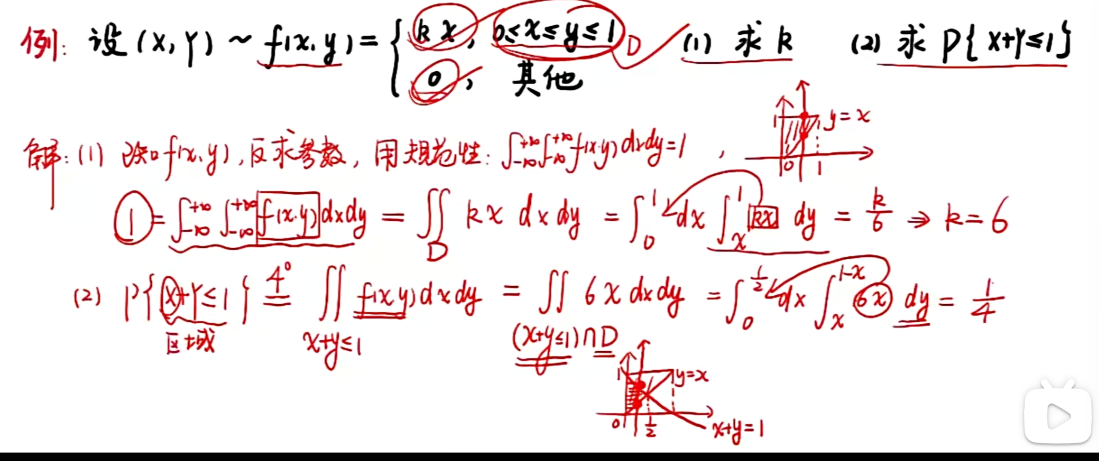 例: 设(X,Y) ~ f(x,y) = { kx, 0≤x≤y≤1 D (1) 求k (2) 求P{X+Y≤1}
0, 其他
解: (1) 已知f(x,y), 反求参数, 用规范性: ∫_{-∞}^{+∞}∫_{-∞}^{+∞} f(x,y)dxdy=1 ,
1 y=x
0 1
1 = ∫_{-∞}^{+∞}∫_{-∞}^{+∞} f(x,y) dxdy = ∬_D kx dxdy = ∫_0^1 dx ∫_x^1 kx dy = k/6 ⇒ k=6
(2) P{X+Y≤1} 4° = ∬_{x+y≤1} f(x,y)dxdy = ∬_{(x+y≤1)∩D} 6x dxdy = ∫_0^{1/2} dx ∫_x^{1-x} 6x dy = 1/4
区域
1 y=x
0 1/2 x+y=1